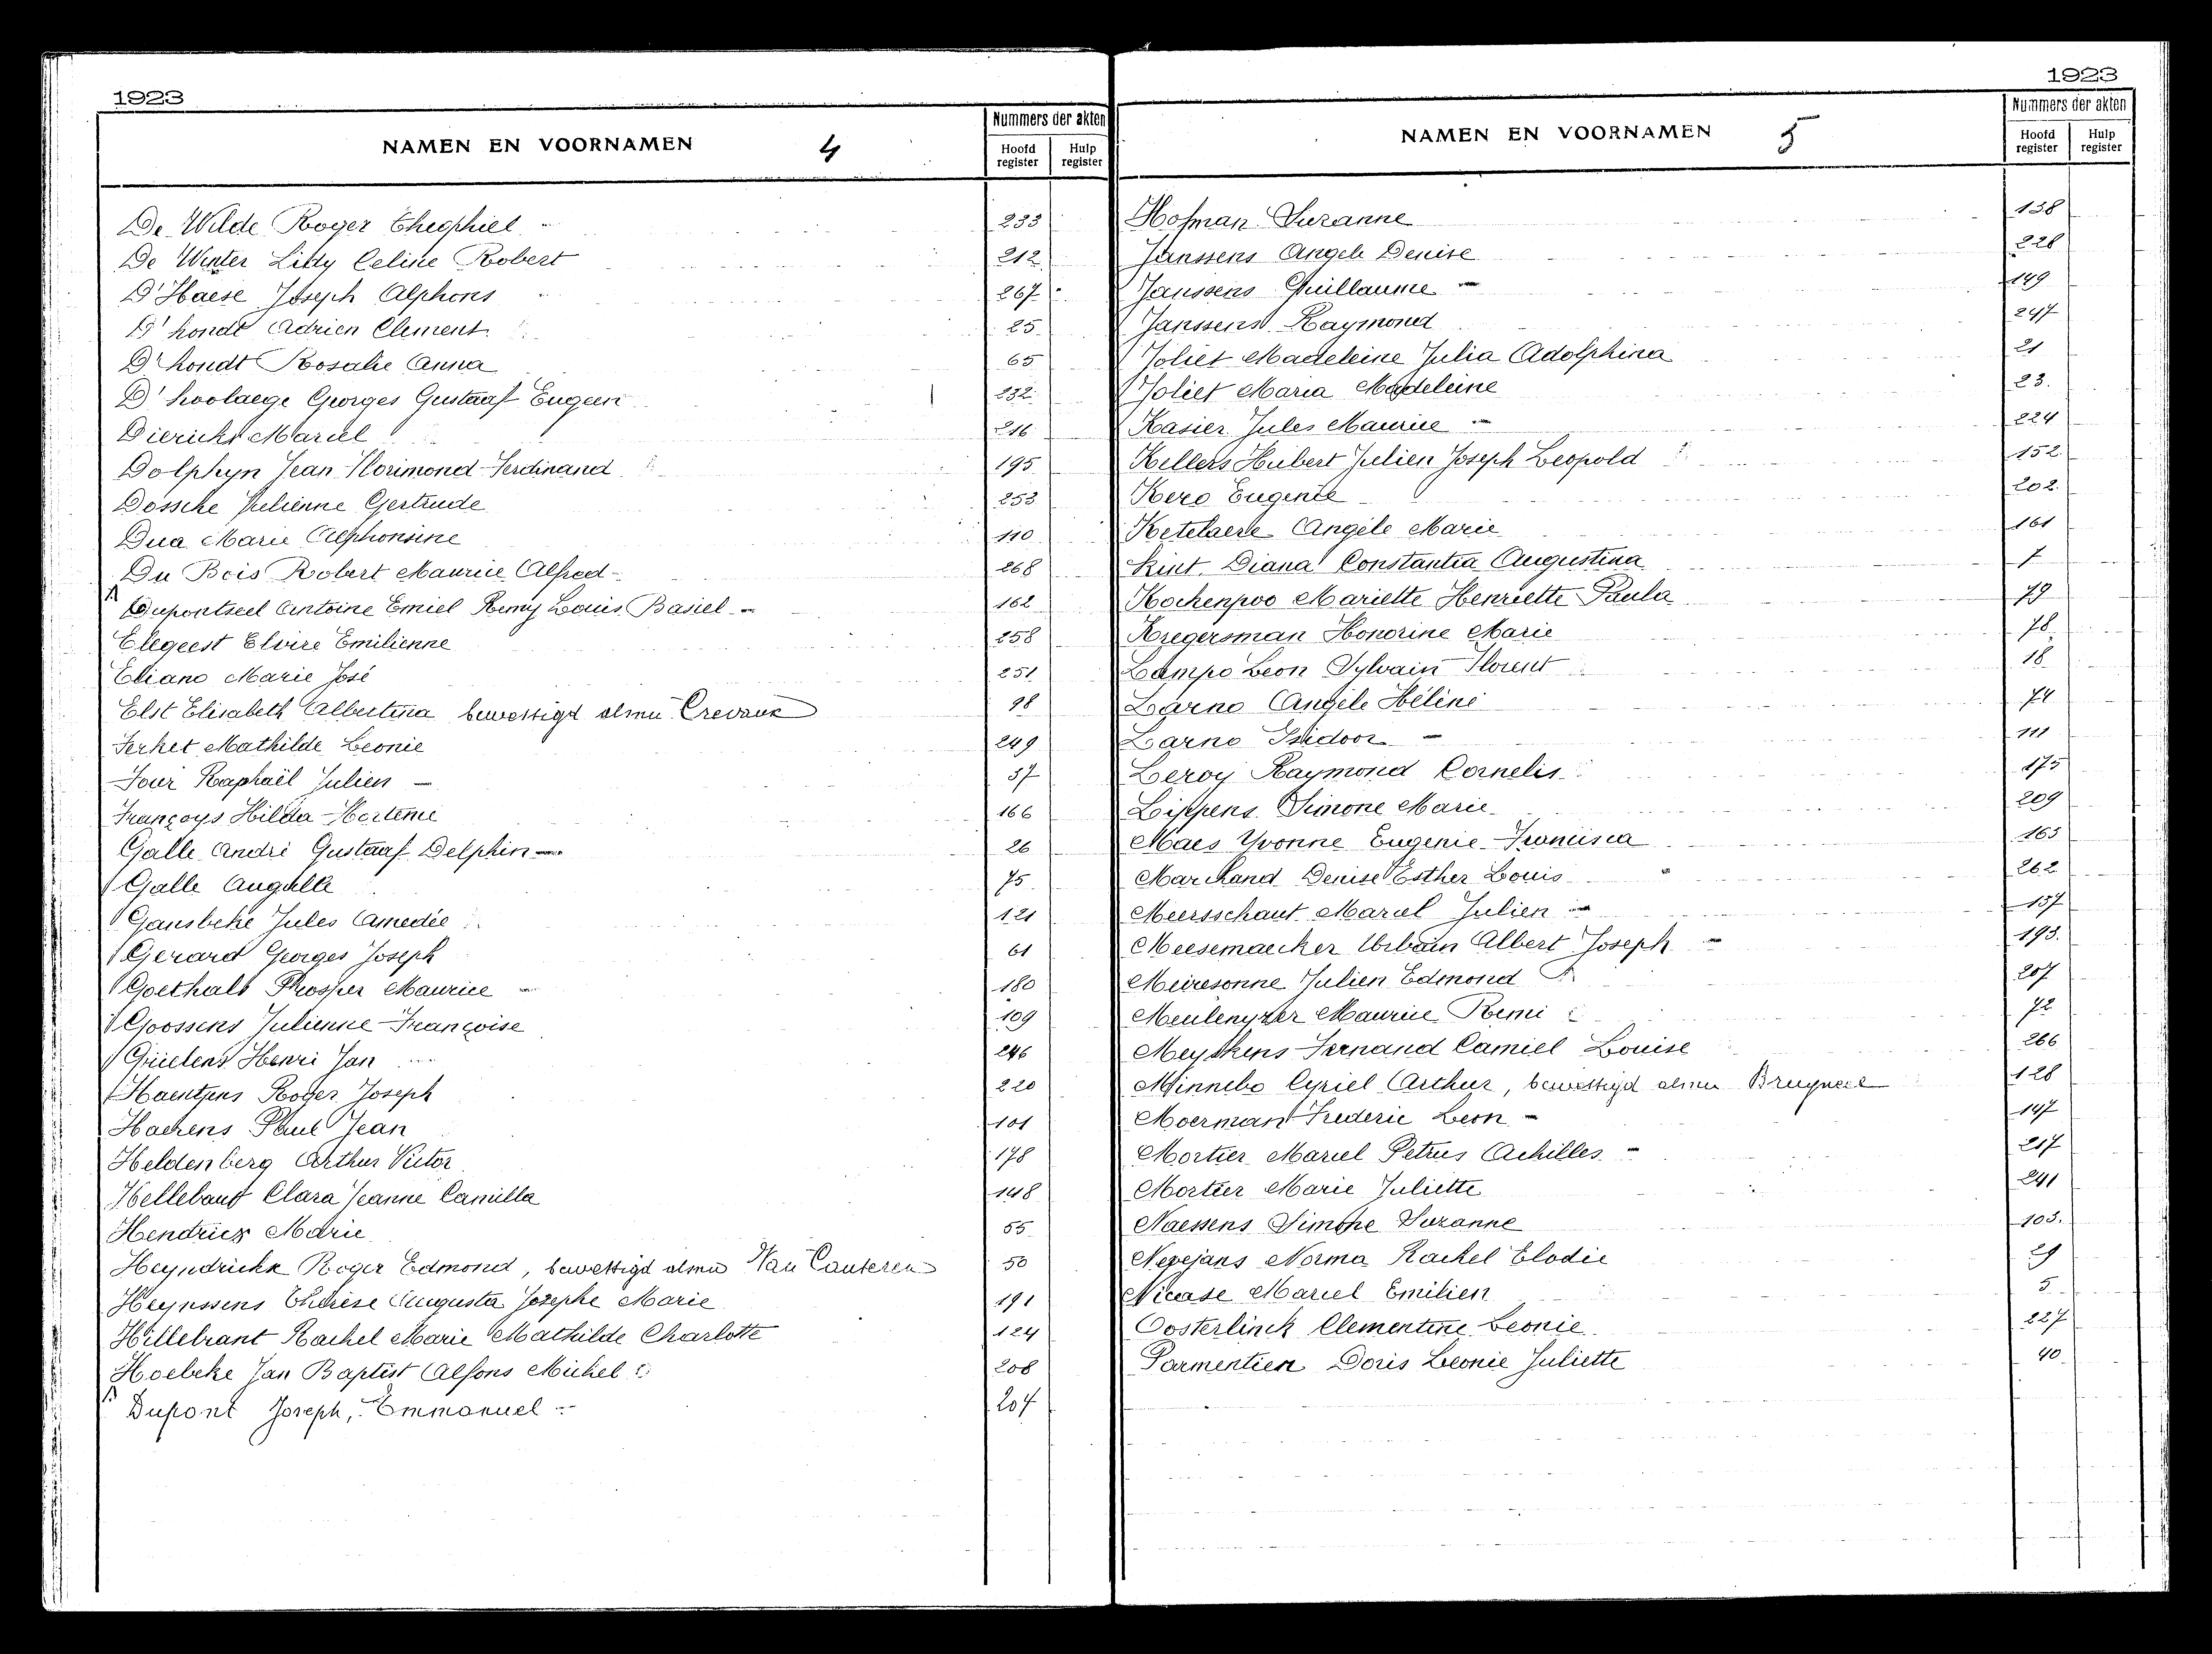 1923
NAMEN EN VOORNAMEN 4
Nummers der akten
Hoofd register Hulp register
De Wilde Roger Theophiel 233
De Winter Liby Celine Robert 212
D'Haese Joseph Alphons 267
D'hondt Adrien Clement 25
D'hondt Rosalie Anna 65
D'hoolaege Georges Gustaaf Eugeen 232
Diericks Marcel 216
Dolphyn Jean Florimond Ferdinand 195
Dossche Julienne Gertrude 253
Dua Marie Alphonsine 110
Du Bois Robert Maurice Alfred 268
Dupontseel Antoine Emiel Remy Louis Basiel 162
Elegeest Elvire Emilienne 258
Eliano Marie José 251
Elst Elisabeth Albertina bewettigd als 98
Ferket Mathilde Leonie 249
Four Raphaël Julien 37
Françoys Hilda Hortense 166
Galle André Gustaaf Delphin 26
Galle 75
Gansbeke Jules Amedée 121
Gerard Georges Joseph 61
Goethals Prosper Maurice 180
Goossens Julienne Françoise 109
Henri Jan 246
Haentjens Roger Joseph 220
Haerens Paul Jean 101
Heldenberg Arthur Victor 178
Hellebaut Clara Jeanne Camilla 148
Hendrickx Marie 55
Heyndrickx Roger Edmond, bewettigd als Van Cauteren 50
Heynssens Therèse Augusta Josephe Marie 191
Hillebrant Rachel Marie Mathilde Charlotte 124
Hoebeke Jan Baptist Alfons Michel 208
Dupont Joseph, Emmanuel 207
1923
NAMEN EN VOORNAMEN 5
Nummers der akten
Hoofd register Hulp register
Hofman Suzanne 138
Janssens Angele Denise 228
Janssens Guillaume 149
Janssens Raymond 247
Joliet Madeleine Julia Adolphina 21
Joliet Maria Madeleine 23.
Kasier Jules Maurice 224
Kellers Hubert Julien Joseph Leopold 152
Kero Eugenie 202
Ketelaere Angèle Marie 161
Kint Diana Constantia Augustina 7
Kochenpoo Mariette Henriette Paula 79
Kregersman Honorine Marie 78
Lampo Leon Sylvain Florent 18
Larno Angèle Hélène 74
Larno Isidoor 111
Leroy Raymond Cornelis 175
Lippens Simone Marie 209
Maes Yvonne Eugenie Francisca 165
Marchand Denise Esther Louis 262
Meersschaut Marcel Julien 137
Meesemaecker Urbain Albert Joseph 193.
Meiresonne Julien Edmond 207
Meulenyzer Maurice Remi 72
Meyskens Fernand Camiel Louise 266
Minnebo Cyriel Arthur, bewettigd als Bruyneel 128
Moerman Frederic Leon 147
Mortier Marcel Petrus Achilles 217
Mortier Marie Juliette 241
Naessens Simone Suzanne 103.
Negejans Norma Rachel Elodie 29
Nicase Marcel Emilien 5
Oosterlinck Clementine Leonie 227
Parmentier Doris Leonie Juliette 40